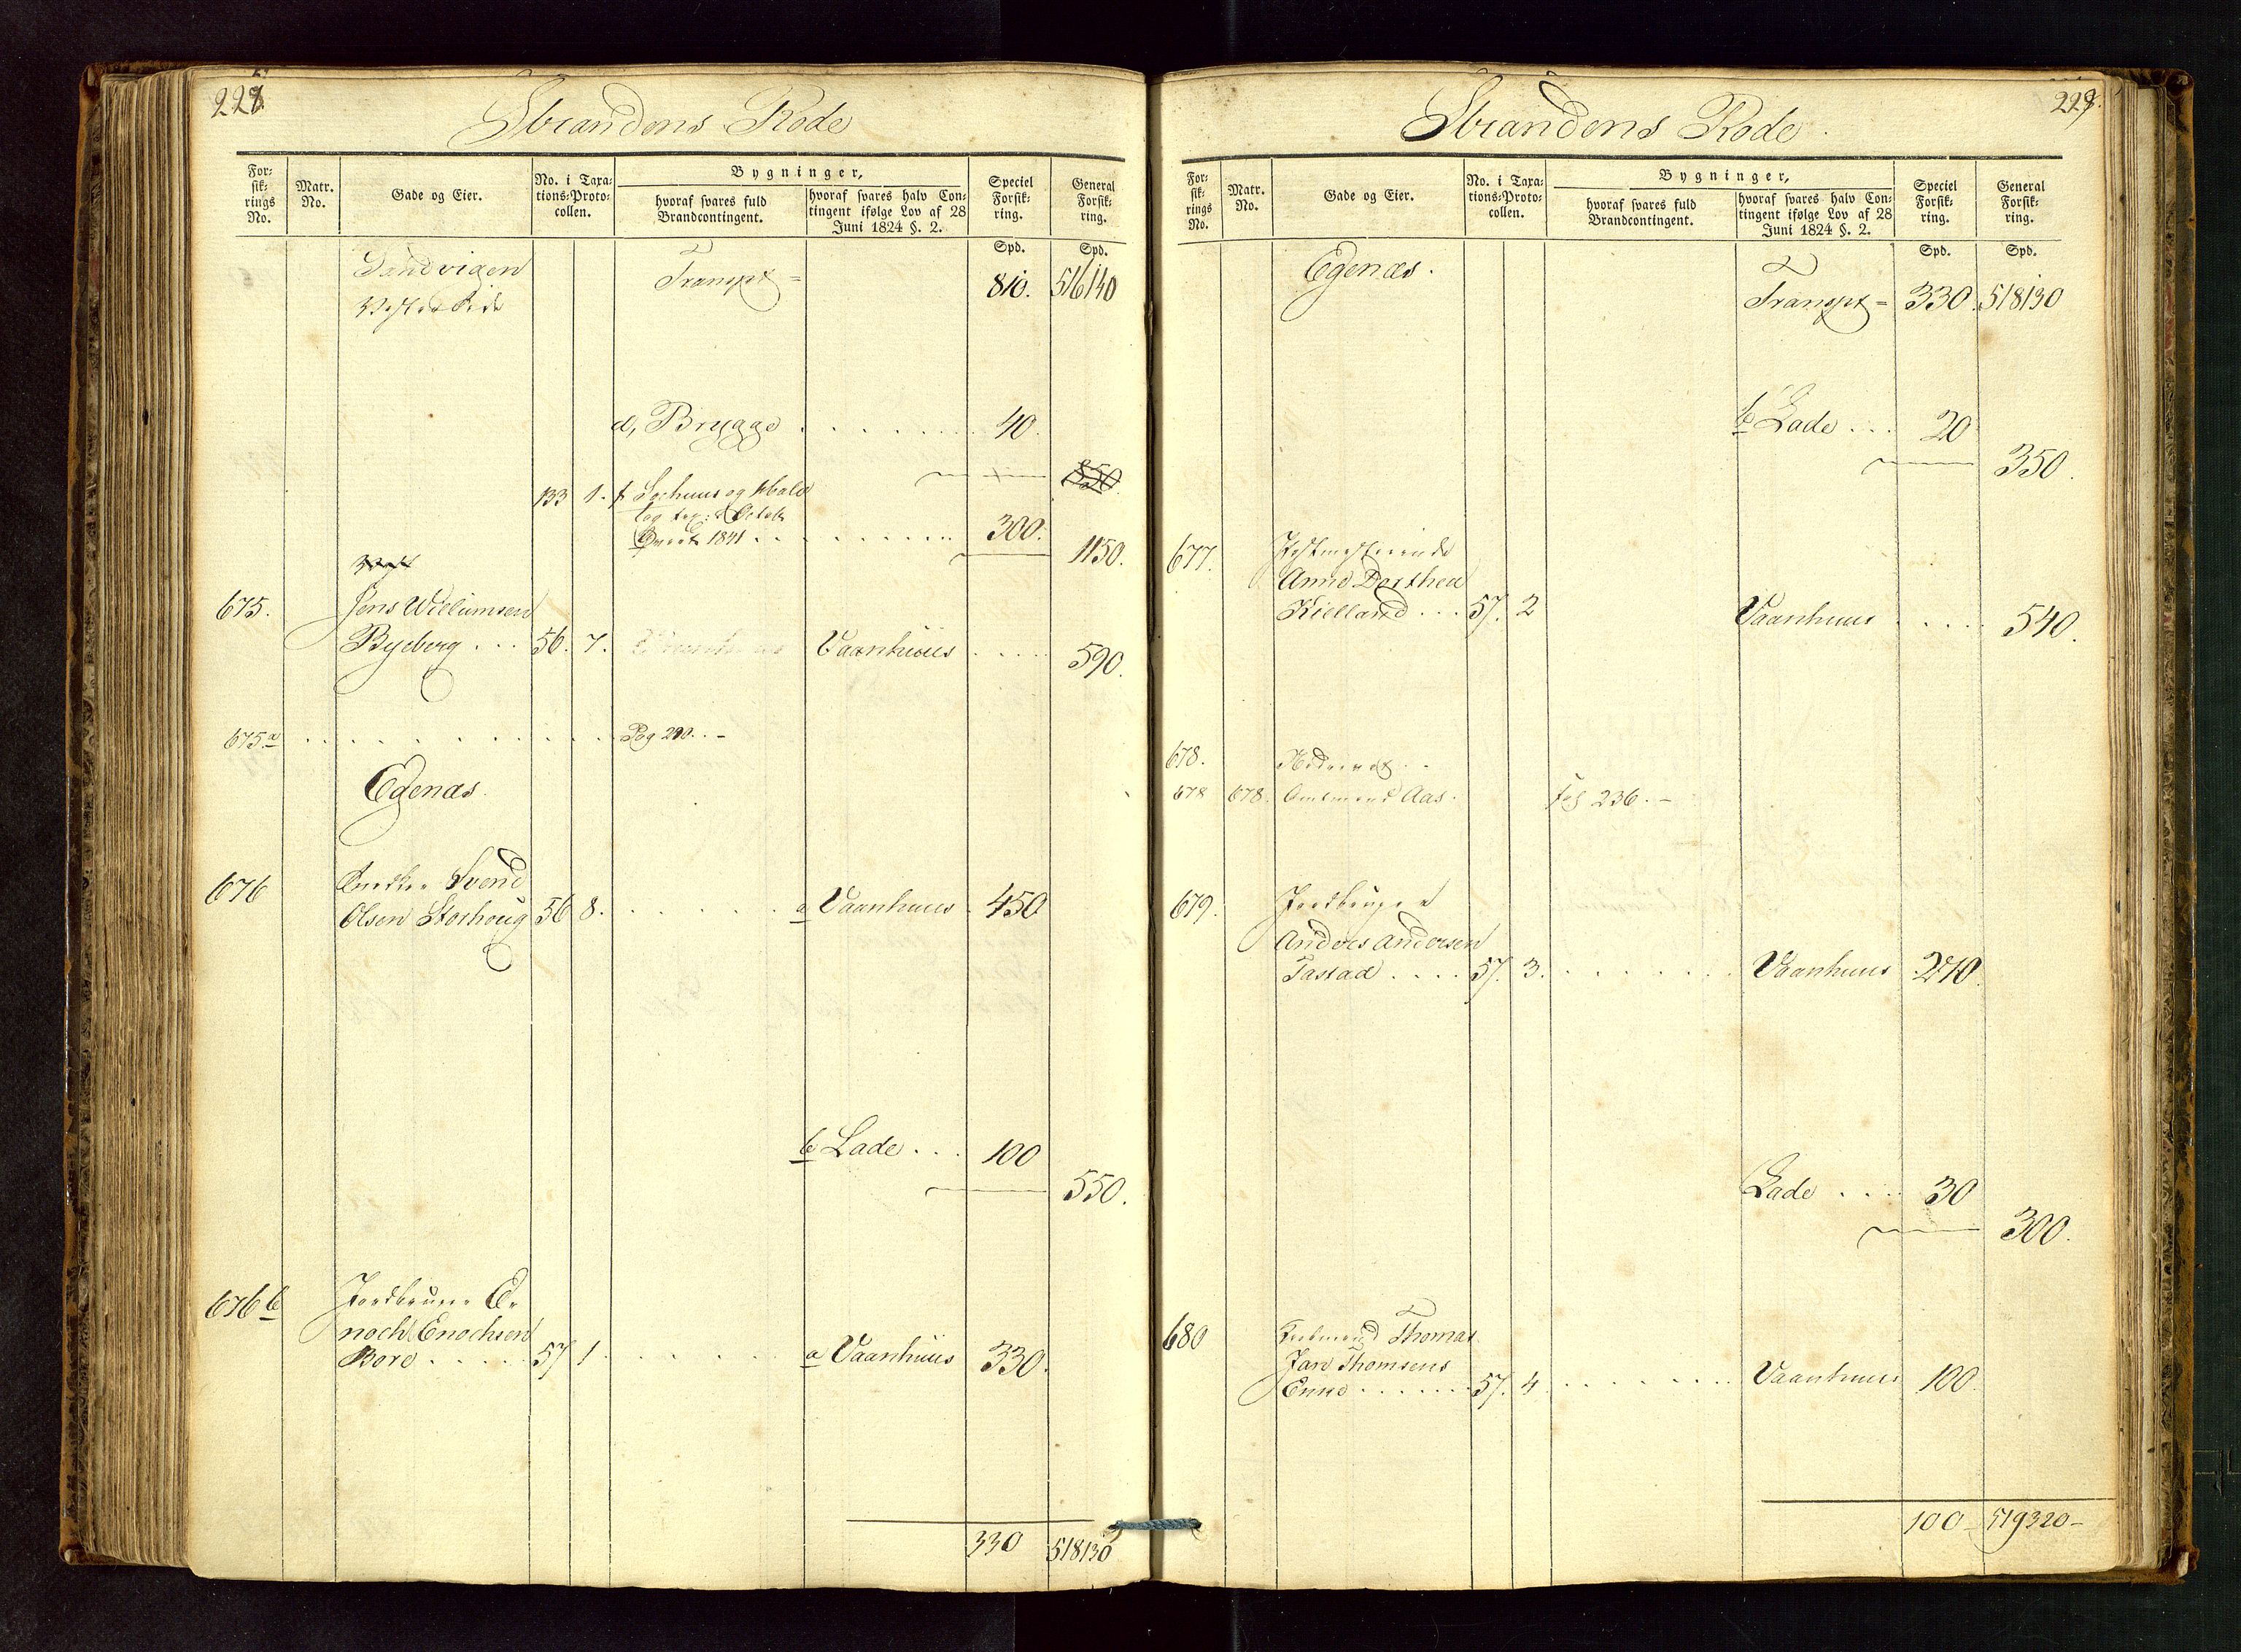 228.
Strandens Rode
For=
sik=
rings
No.
Matr.
No.
Gade og Eier.
No. i Taxa=
tions=Proto=
collen.
Bygninger,
hvoraf svares fuld
Brandcontingent.
hvoraf svares halv Con=
tingent ifølge Lov af 28
Juni 1824 §. 2.
Speciel
Forsik=
ring.
General
Forsik=
ring.
Spd. Spd.
Sandvigen
Transpt = 810. 516140
d, Brygge . . . . . . . 40.
850
133 1. f Søehuus og
1841 . . . . . . . . 300.
1150.
675. Jens Willumsen
Byeberg . . . 56. 7. Vaanhuus . . . . 590.
675a . . . . . . . . . . . Pag 290. . -
Egenæs.
676 Svend
Olsen Storhoug 56 8. . . . . . . a Vaanhuus . 450
b Lade . . . 100
550.
676b Jordbruger E-
noch Enochsen
Bore . . . . . 57 1 . . . . . . a Vaanhuus 330.
330 518130
229.
Strandens Rode.
For=
sik=
rings
No.
Matr.
No.
Gade og Eier.
No. i Taxa=
tions=Proto=
collen.
Bygninger,
hvoraf svares fuld
Brandcontingent.
hvoraf svares halv Con=
tingent ifølge Lov af 28
Juni 1824 §. 2.
Speciel
Forsik=
ring.
General
Forsik=
ring.
Spd. Spd.
Egenæs.
Transpt = 330. 518130
b Lade . . . 20
350.
677.
Anne Dorthea
Kielland . . . 57. 2 Vaanhuus . . . . . 540.
678.
678 678. Aas. 236. -
679. Jordbruger
Anders Andersen
Tastad . . . . 57. 3. . . . . . . . Vaanhuus 270.
Lade . . . . 30
300.
680 Thomas
Jan Thomsens
Enke . . . . . . 57. 4 . . . . . . . Vaanhuus 100.
100 - 519320 -